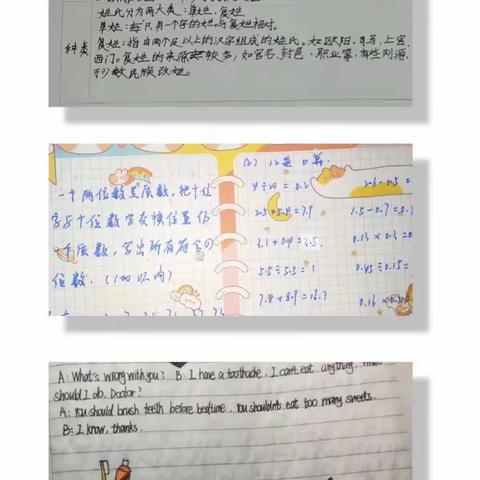 姓氏分为两大类:单姓、复姓
单姓:每只有一个字的姓,与复姓相对。
种类
复姓:指由两个及以上的汉字组成的姓氏。如欧阳、司马、上官、
西门。复姓的来源较多,如官名、封邑、职业等,有些则源
于少数民族改姓。
一个两位数是质数,把十位
字与个位数字交换位置仍
个质数,写出所有符合的
位数.(100以内)
12道口算.
4÷20=0.2
3.1+0.4=3.5
5.5÷5.5=1
7.8+8.9=16.7
2.6-0.5=
1.5-0.7=0.
0.13×0.3=0
0.45÷0.15=
A: What's wrong with you? B: I have a toothache. I can't eat anything. What
should I do, Doctor?
A: You should brush teeth before bedtime. You shouldn't eat too many sweets.
B: I know, thanks.